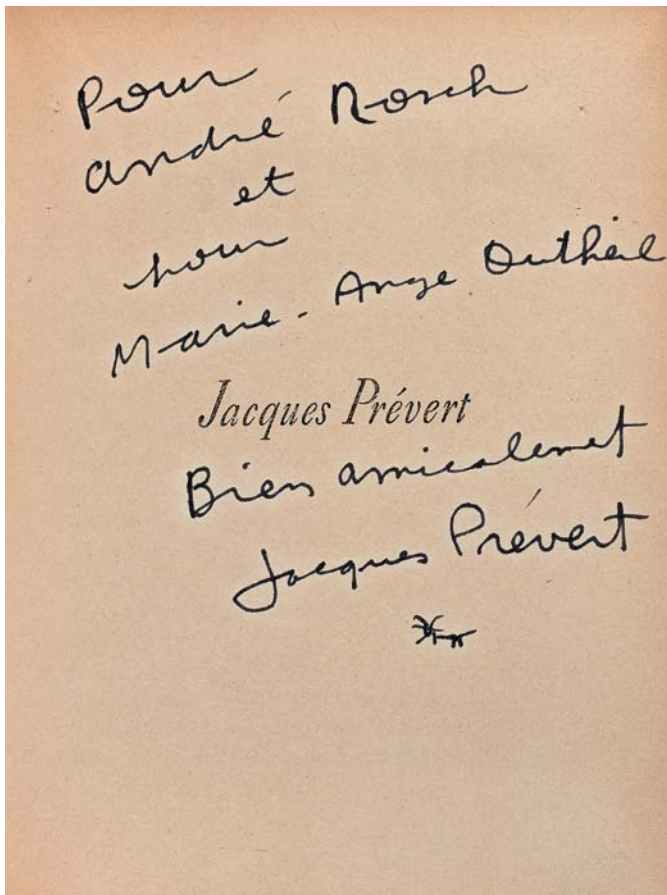 Pour
André Rosch
et
pour
Marie-Ange Dutheil
Jacques Prévert
Bien amicalemet
Jacques Prévert